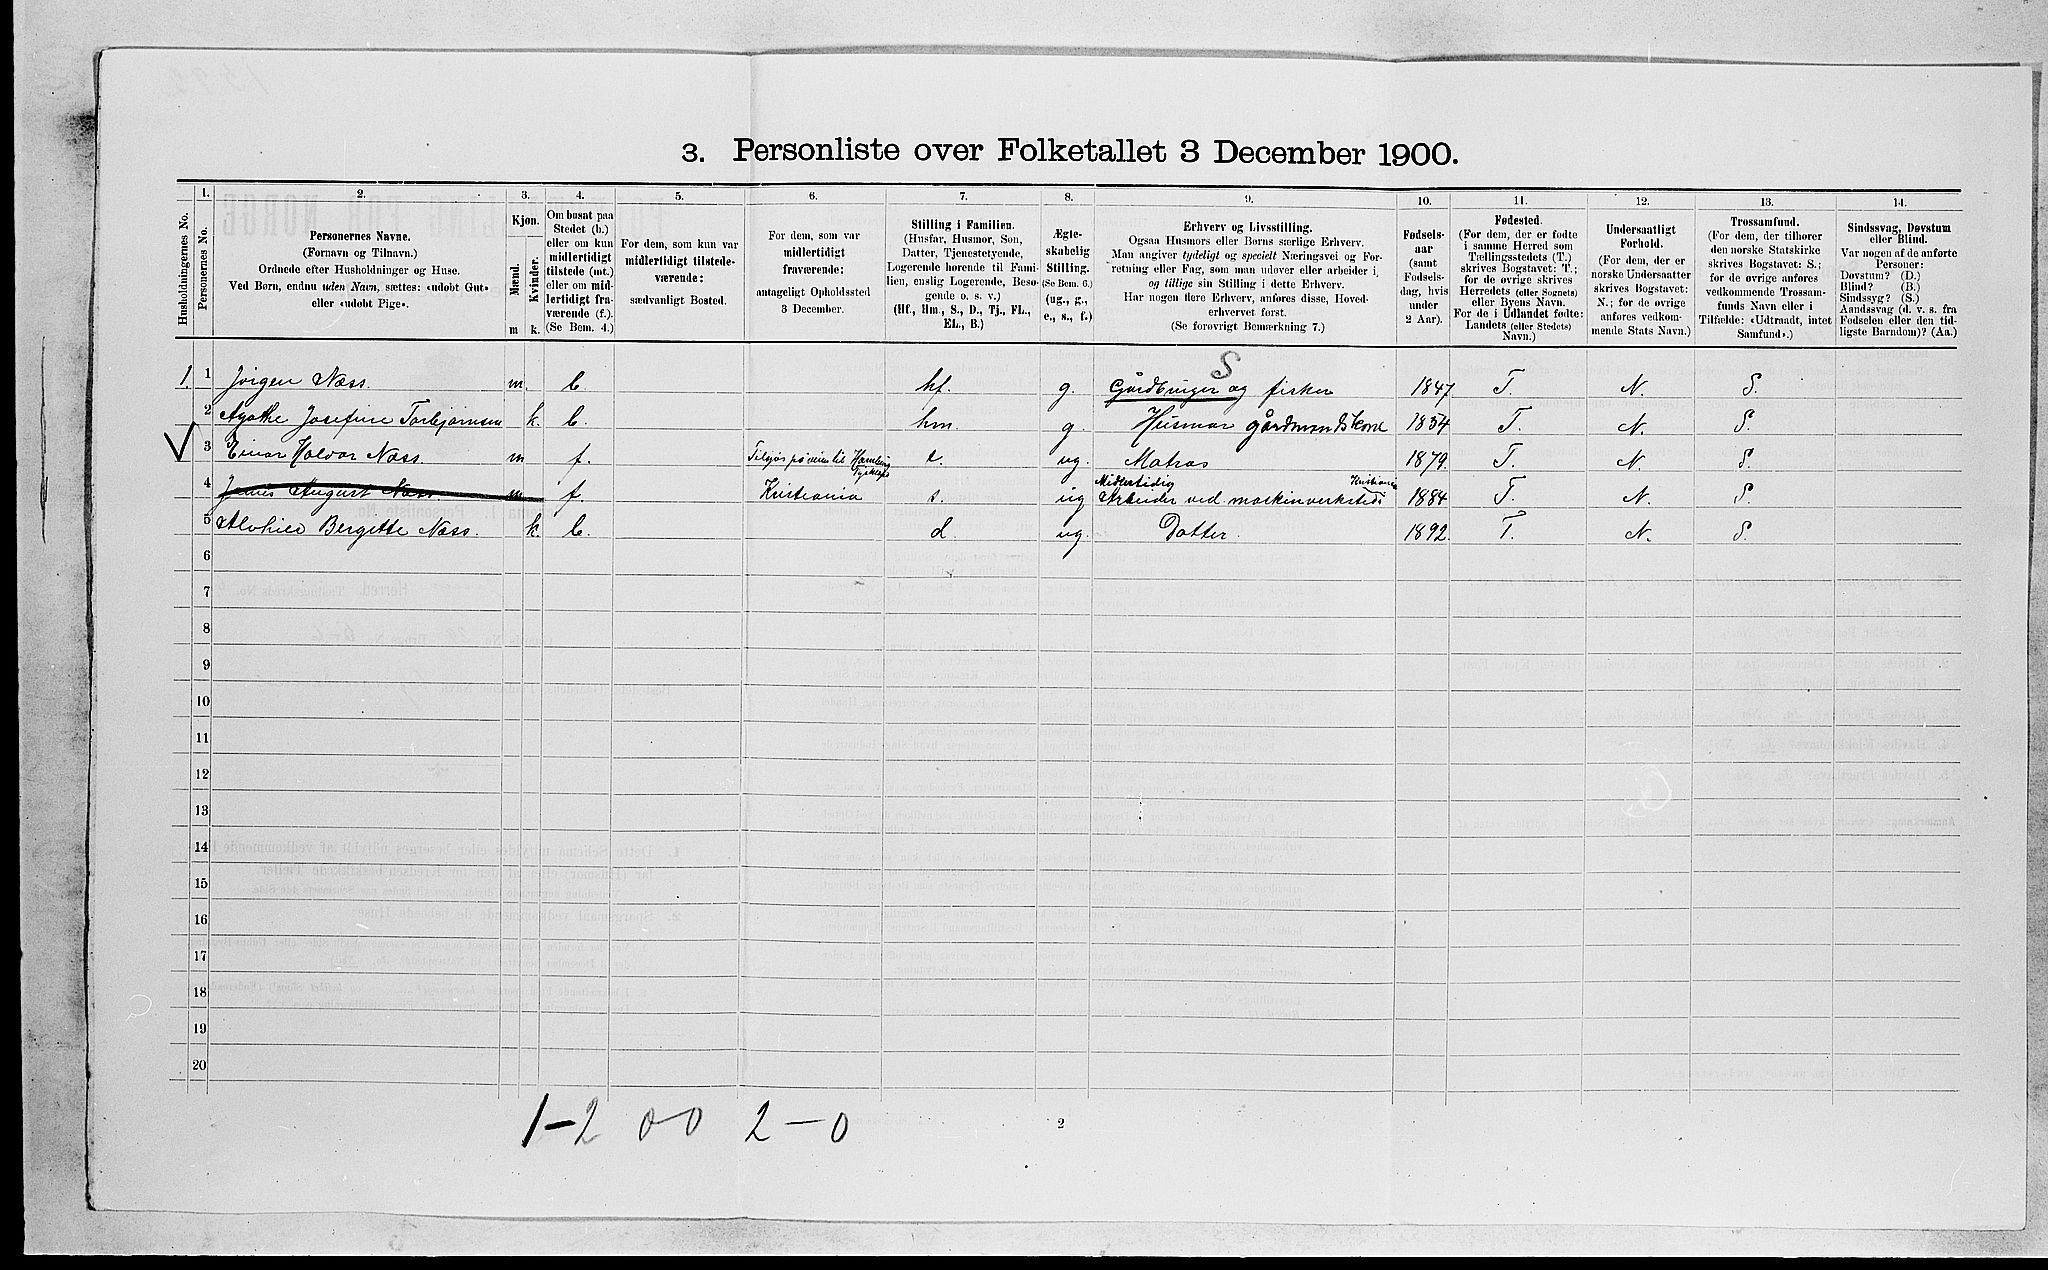 3. Personliste over Folketallet 3 December 1900.
1. 2. 3. 4. 5. 6. 7. 8. 9. 10. 11. 12. 13. 14.
Husholdningernes No.
Personernes No.
Personernes Navne.
(Fornavn og Tilnavn.)
Ordnede efter Husholdninger og Huse.
Ved Børn, endnu uden Navn, sættes: «udøbt Gut»
eller «udøbt Pige».
Kjøn.
Mænd.
Kvinder.
m k.
Om bosat paa
Stedet (b.)
eller om kun
midlertidigt
tilstede (mt.)
eller om mid-
lertidigt fra-
værende (f.).
(Se Bem. 4.)
For dem, som kun var
midlertidigt tilstede-
værende:
sædvanligt Bosted.
For dem, som var
midlertidigt
fraværende:
antageligt Opholdssted
3 December.
Stilling i Familien.
(Husfar, Husmor, Søn,
Datter, Tjenestetyende,
Logerende hørende til Fami-
lien, enslig Logerende, Besø-
gende o. s. v.)
(Hf., Hm., S., D., Tj., FL.,
EL., B.)
Ægte-
skabelig
Stilling.
(Se Bem. 6.)
(ug., g.,
e., s., f.)
Erhverv og Livsstilling.
Ogsaa Husmors eller Børns særlige Erhverv.
Man angiver tydeligt og specielt Næringsvei og For-
retning eller Fag, som man udover eller arbeider i,
og tillige sin Stilling i dette Erhverv.
Har nogen flere Erhverv, anføres disse, Hoved-
erhvervet først.
(Se forøvrigt Bemærkning 7.)
Fødsels-
aar
(samt
Fødsels-
dag, hvis
under
2 Aar).
Fødested.
(For dem, der er fødte
i samme Herred som
Tællingsstedets (T.)
skrives Bogstavet: T.;
for de øvrige skrives
Herredets (eller Sognets)
eller Byens Navn.
For de i Udlandet fødte:
Landets (eller Stedets)
Navn.)
Undersaatligt
Forhold.
(For dem, der er
norske Undersaatter
skrives Bogstavet:
N.; for de øvrige
anføres vedkom-
mende Stats Navn.)
Trossamfund.
(For dem, der tilhører
den norske Statskirke
skrives Bogstavet: S.;
for de øvrige anføres
vedkommende Trossam-
funds Navn eller i
Tilfælde: «Udtraadt, intet
Samfund».)
Sindssvag, Døvstum
eller Blind.
Var nogen af de anførte
Personer:
Døvstum? (D.)
Blind? (B.)
Sindssyg? (S.)
Aandssvag (d. v. s. fra
Fødselen eller den tid-
ligste Barndom)? (Aa.)
S
1. 1 Jørgen Næss. m. b. hf. g. Gårdbruger og fisker 1847. T. N. S.
2 Agathe Josefine Torbjørnsen k. b. hm. g. Husmor gårdmandskone 1854 T. N. S.
3 Einar Halvor Næss. m f. s. ug. Matros 1879. T. N. S.
Midlertidig Kristiania
4 August Næss. m f. Kristiania s. ug Arbeider ved maskinverksted 1884 T. N. S
5 Bergette Næss. k. b. d. ug. Datter. 1892. T. N. S.
6
7
8
9
10
11
12
13
14
15
16
17
18
19
20
1-2 0-0 2-0
2